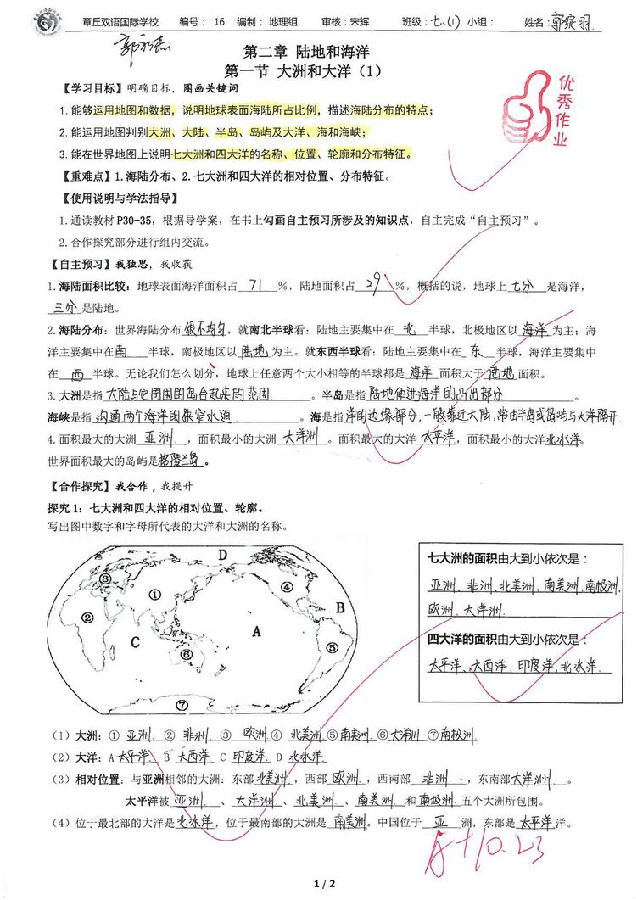 章丘双语国际学校 编号: 16 编制: 地理组 审核: 宋辉 班级: 七.(1) 小组: 姓名:
第二章 陆地和海洋
第一节 大洲和大洋（1）
优秀作业
【学习目标】明确目标，图画关键词
1.能够运用地图和数据，说明地球表面海陆所占比例，描述海陆分布的特点；
2.能运用地图判别大洲、大陆、半岛、岛屿及大洋、海和海峡；
3.能在世界地图上说明七大洲和四大洋的名称、位置、轮廓和分布特征。
【重难点】1.海陆分布、2.七大洲和四大洋的相对位置、分布特征。
【使用说明与学法指导】
1.通读教材P30-35，根据导学案，在书上勾画自主预习所涉及的知识点，自主完成“自主预习”。
2.合作探究部分进行组内交流。
【自主预习】我独思，我收获
1.海陆面积比较：地球表面海洋面积占 71 %，陆地面积占 29 %，概括的说，地球上七分是海洋，
三分是陆地。
2.海陆分布：世界海陆分布很不均匀。就南北半球看：陆地主要集中在 北 半球，北极地区以 海洋 为主；海
洋主要集中在南 半球，南极地区以 陆地 为主。就东西半球看：陆地主要集中在 东 半球，海洋主要集中
在 西 半球。无论我们怎么划分，地球上任意两个大小相等的半球都是 海洋 面积大于 陆地 面积。
3.大洲是指 大陆与它周围的岛合起来的范围。半岛是指 陆地伸进海洋的凸出部分。
海峡是指 沟通两个海洋的狭窄水道。海是指洋的边缘部分,一般靠近大陆,常由半岛或岛屿与大洋隔开
4.面积最大的大洲 亚洲，面积最小的大洲 大洋洲。面积最大的大洋 太平洋，面积最小的大洋北冰洋
世界面积最大的岛屿是格陵兰岛。
【合作探究】我合作，我提升
探究1：七大洲和四大洋的相对位置、轮廓。
写出图中数字和字母所代表的大洋和大洲的名称。
D
③ ① ④
② B
C A
⑥ ⑤
⑦
七大洲的面积由大到小依次是：
亚洲、非洲、北美洲、南美洲、南极洲
欧洲、大洋洲.
四大洋的面积由大到小依次是：
太平洋、大西洋 印度洋、北冰洋.
（1）大洲：① 亚洲 ② 非洲 ③ 欧洲 ④ 北美洲 ⑤南美洲 ⑥大洋洲 ⑦南极洲
（2）大洋：A太平洋 B 大西洋 C 印度洋 D 北冰洋
（3）相对位置：与亚洲相邻的大洲：东部北美洲，西部 欧洲，西南部 非洲，东南部大洋洲。
太平洋被 亚洲、大洋洲、北美洲、南美洲 和南极洲 五个大洲所包围。
（4）位于最北部的大洋是北冰洋，位于最南部的大洲是 南美洲，中国位于 亚 洲，东部是 太平洋洋。
A+10.23
1 / 2